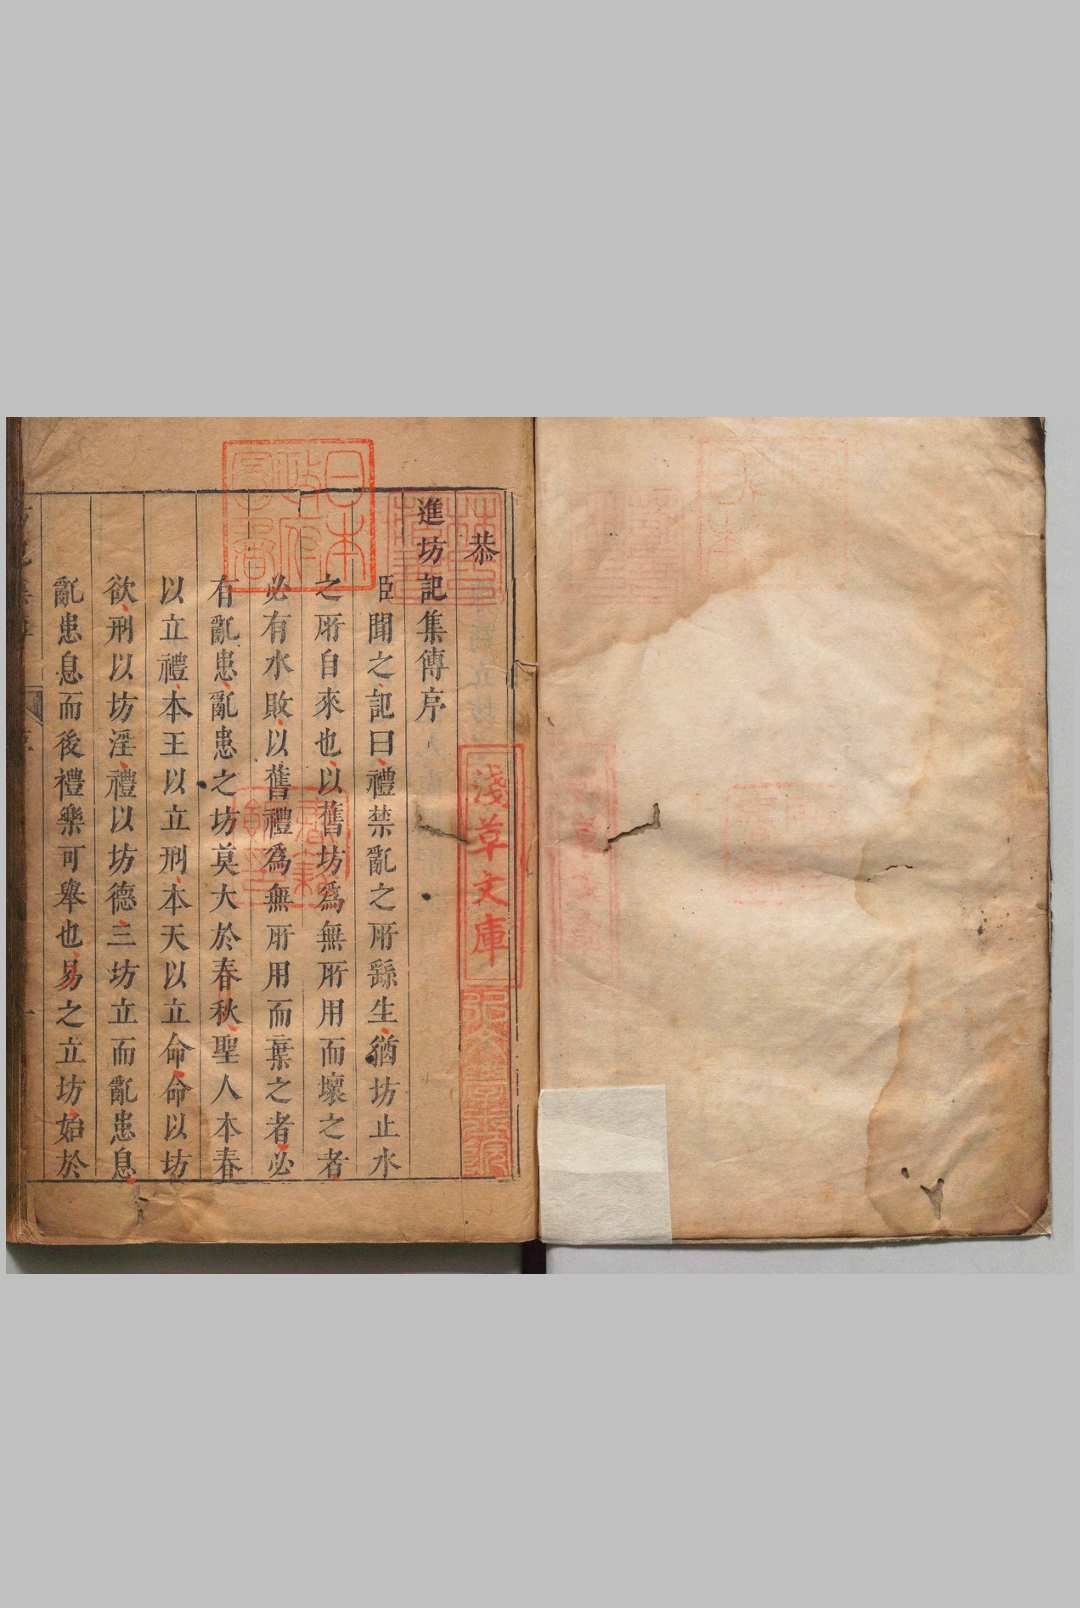 恭
進坊記集傳序
臣聞之記曰禮禁亂之所繇生猶坊止水
之所自來也以舊坊爲無所用而壞之者
必有水敗以舊禮爲無所用而棄之者必
有亂患亂患之坊莫大於春秋聖人本春
以立禮本王以立刑本天以立命命以坊
欲刑以坊淫禮以坊德三坊立而亂患息
亂患息而後禮樂可舉也易之立坊始於
淺草文庫
日本
政府
圖書